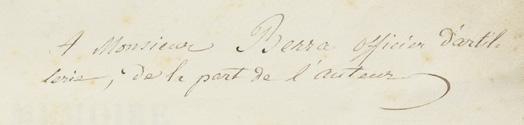 A Monsieur Berra officier d'artil-
lerie, de la part de l'auteur